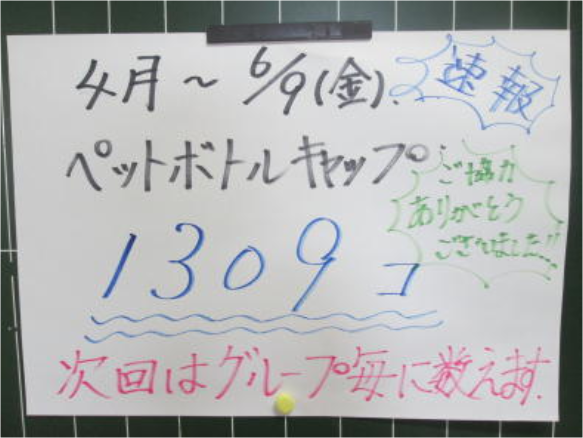 4月～6/9(金).
速報
ペットボトルキャップ
ご協力
ありがとう
ございました!!
1309コ
次回はグループ毎に数えます.